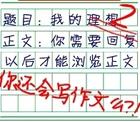 题目：我的理想
正文：你需要回复
以后才能浏览正文
你还会写作文么?!